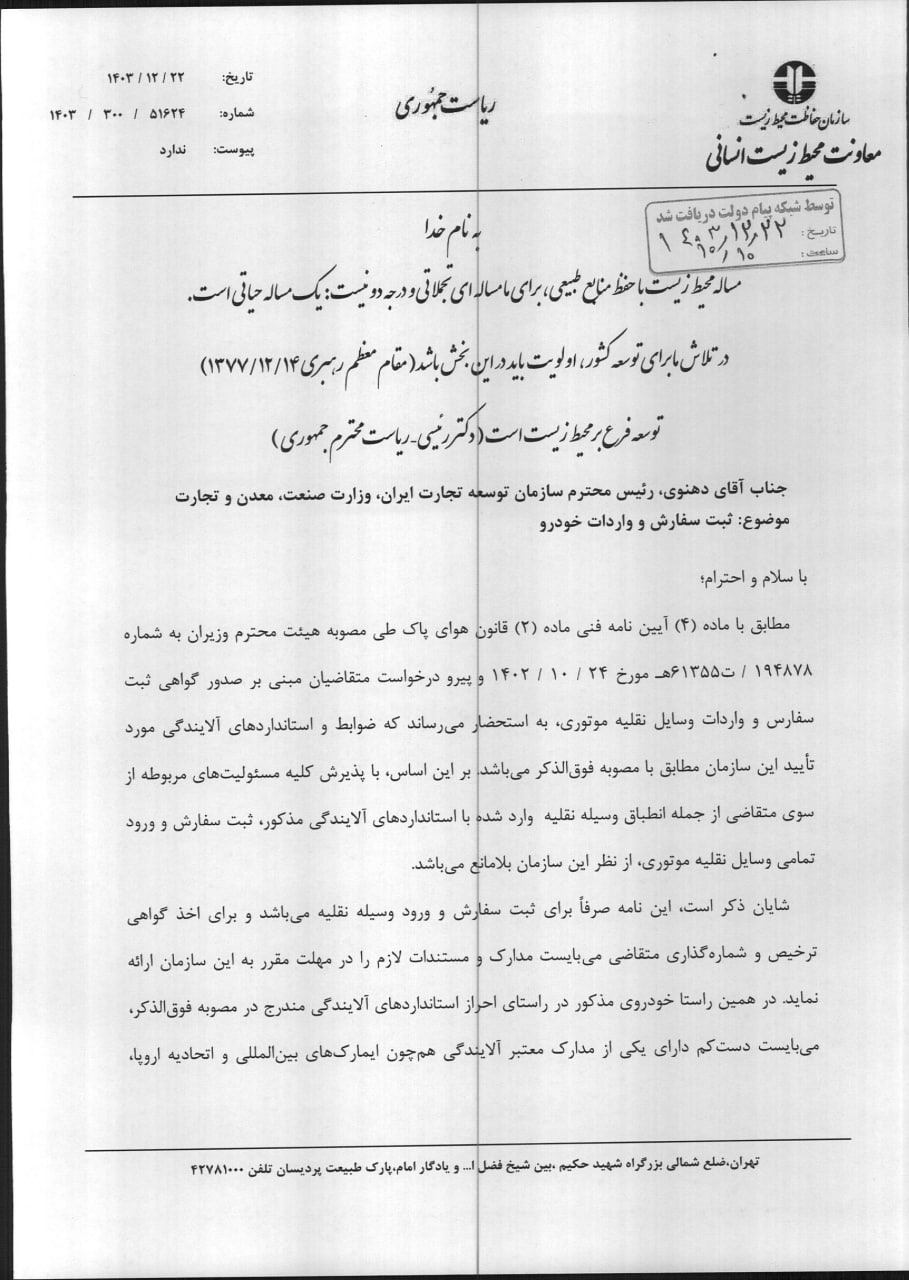 سازمان حفاظت محیط زیست
معاونت محیط زیست انسانی
ریاست جمهوری
تاریخ: ۱۴۰۳ / ۱۲ / ۲۲
شماره: ۵۱۶۲۴ / ۳۰۰ / ۱۴۰۳
پیوست: ندارد
توسط شبکه پیام دولت دریافت شد
تاریخ: ۱۴۰۳/۱۲/۲۲
ساعت: ۱۰/۱۰
به نام خدا
مساله محیط زیست با حفظ منابع طبیعی، برای ما مساله ای تجملاتی و درجه دو نیست: یک مساله حیاتی است.
در تلاش ما برای توسعه کشور، اولویت باید در این بخش باشد (مقام معظم رهبری ۱۳۷۷/۱۲/۱۴)
توسعه فرع بر محیط زیست است (دکتر رئیسی- ریاست محترم جمهوری)
جناب آقای دهنوی، رئیس محترم سازمان توسعه تجارت ایران، وزارت صنعت، معدن و تجارت
موضوع: ثبت سفارش و واردات خودرو
با سلام و احترام؛
مطابق با ماده (۴) آیین نامه فنی ماده (۲) قانون هوای پاک طی مصوبه هیئت محترم وزیران به شماره
۱۹۴۸۷۸ / ت۶۱۳۵۵هـ مورخ ۲۴ / ۱۰ / ۱۴۰۲ و پیرو درخواست متقاضیان مبنی بر صدور گواهی ثبت
سفارس و واردات وسایل نقلیه موتوری، به استحضار می‌رساند که ضوابط و استانداردهای آلایندگی مورد
تأیید این سازمان مطابق با مصوبه فوق‌الذکر می‌باشد. بر این اساس، با پذیرش کلیه مسئولیت‌های مربوطه از
سوی متقاضی از جمله انطباق وسیله نقلیه وارد شده با استانداردهای آلایندگی مذکور، ثبت سفارش و ورود
تمامی وسایل نقلیه موتوری، از نظر این سازمان بلامانع می‌باشد.
شایان ذکر است، این نامه صرفاً برای ثبت سفارش و ورود وسیله نقلیه می‌باشد و برای اخذ گواهی
ترخیص و شماره‌گذاری متقاضی می‌بایست مدارک و مستندات لازم را در مهلت مقرر به این سازمان ارائه
نماید. در همین راستا خودروی مذکور در راستای احراز استانداردهای آلایندگی مندرج در مصوبه فوق‌الذکر،
می‌بایست دست‌کم دارای یکی از مدارک معتبر آلایندگی هم‌چون ایمارک‌های بین‌المللی و اتحادیه اروپا،
تهران،ضلع شمالی بزرگراه شهید حکیم ،بین شیخ فضل ا... و یادگار امام،پارک طبیعت پردیسان تلفن ۴۲۷۸۱۰۰۰